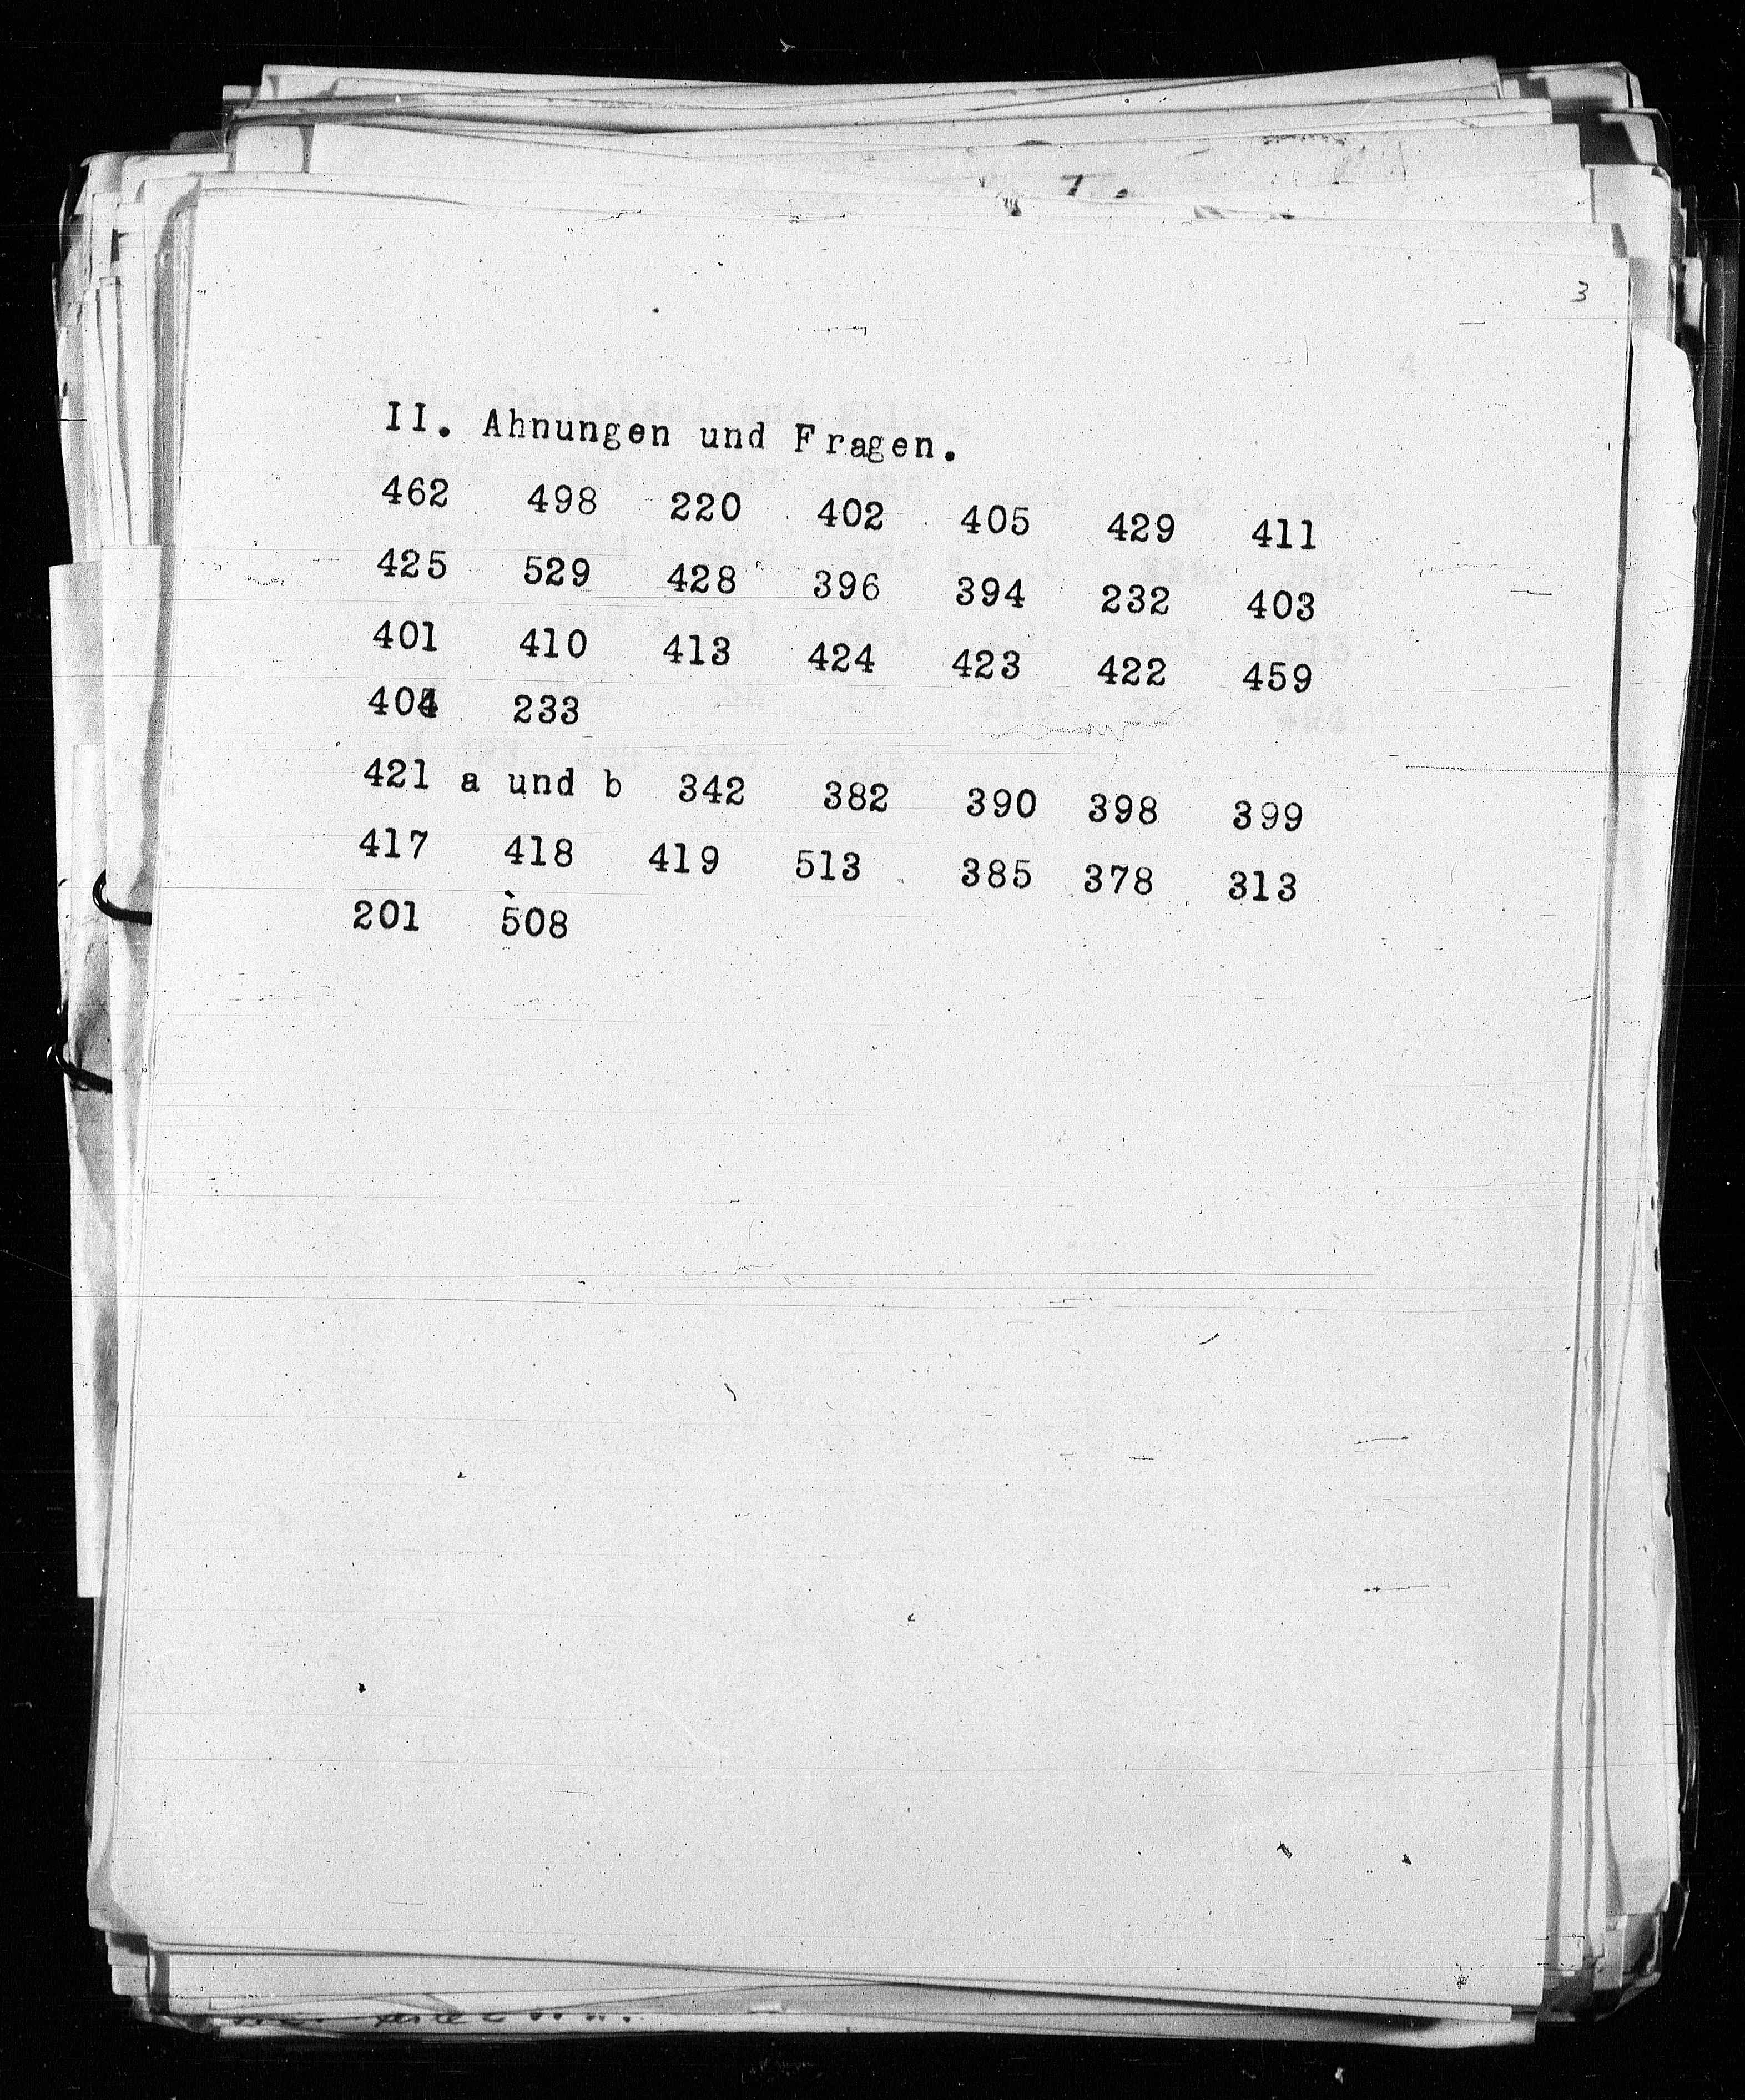 3
II. Ahnungen und Fragen.
462 498 220 402 405 429 411
425 529 428 396 394 232 403
401 410 413 424 423 422 459
404 233
421 a und b 342 382 390 398 399
417 418 419 513 385 378 313
201 508